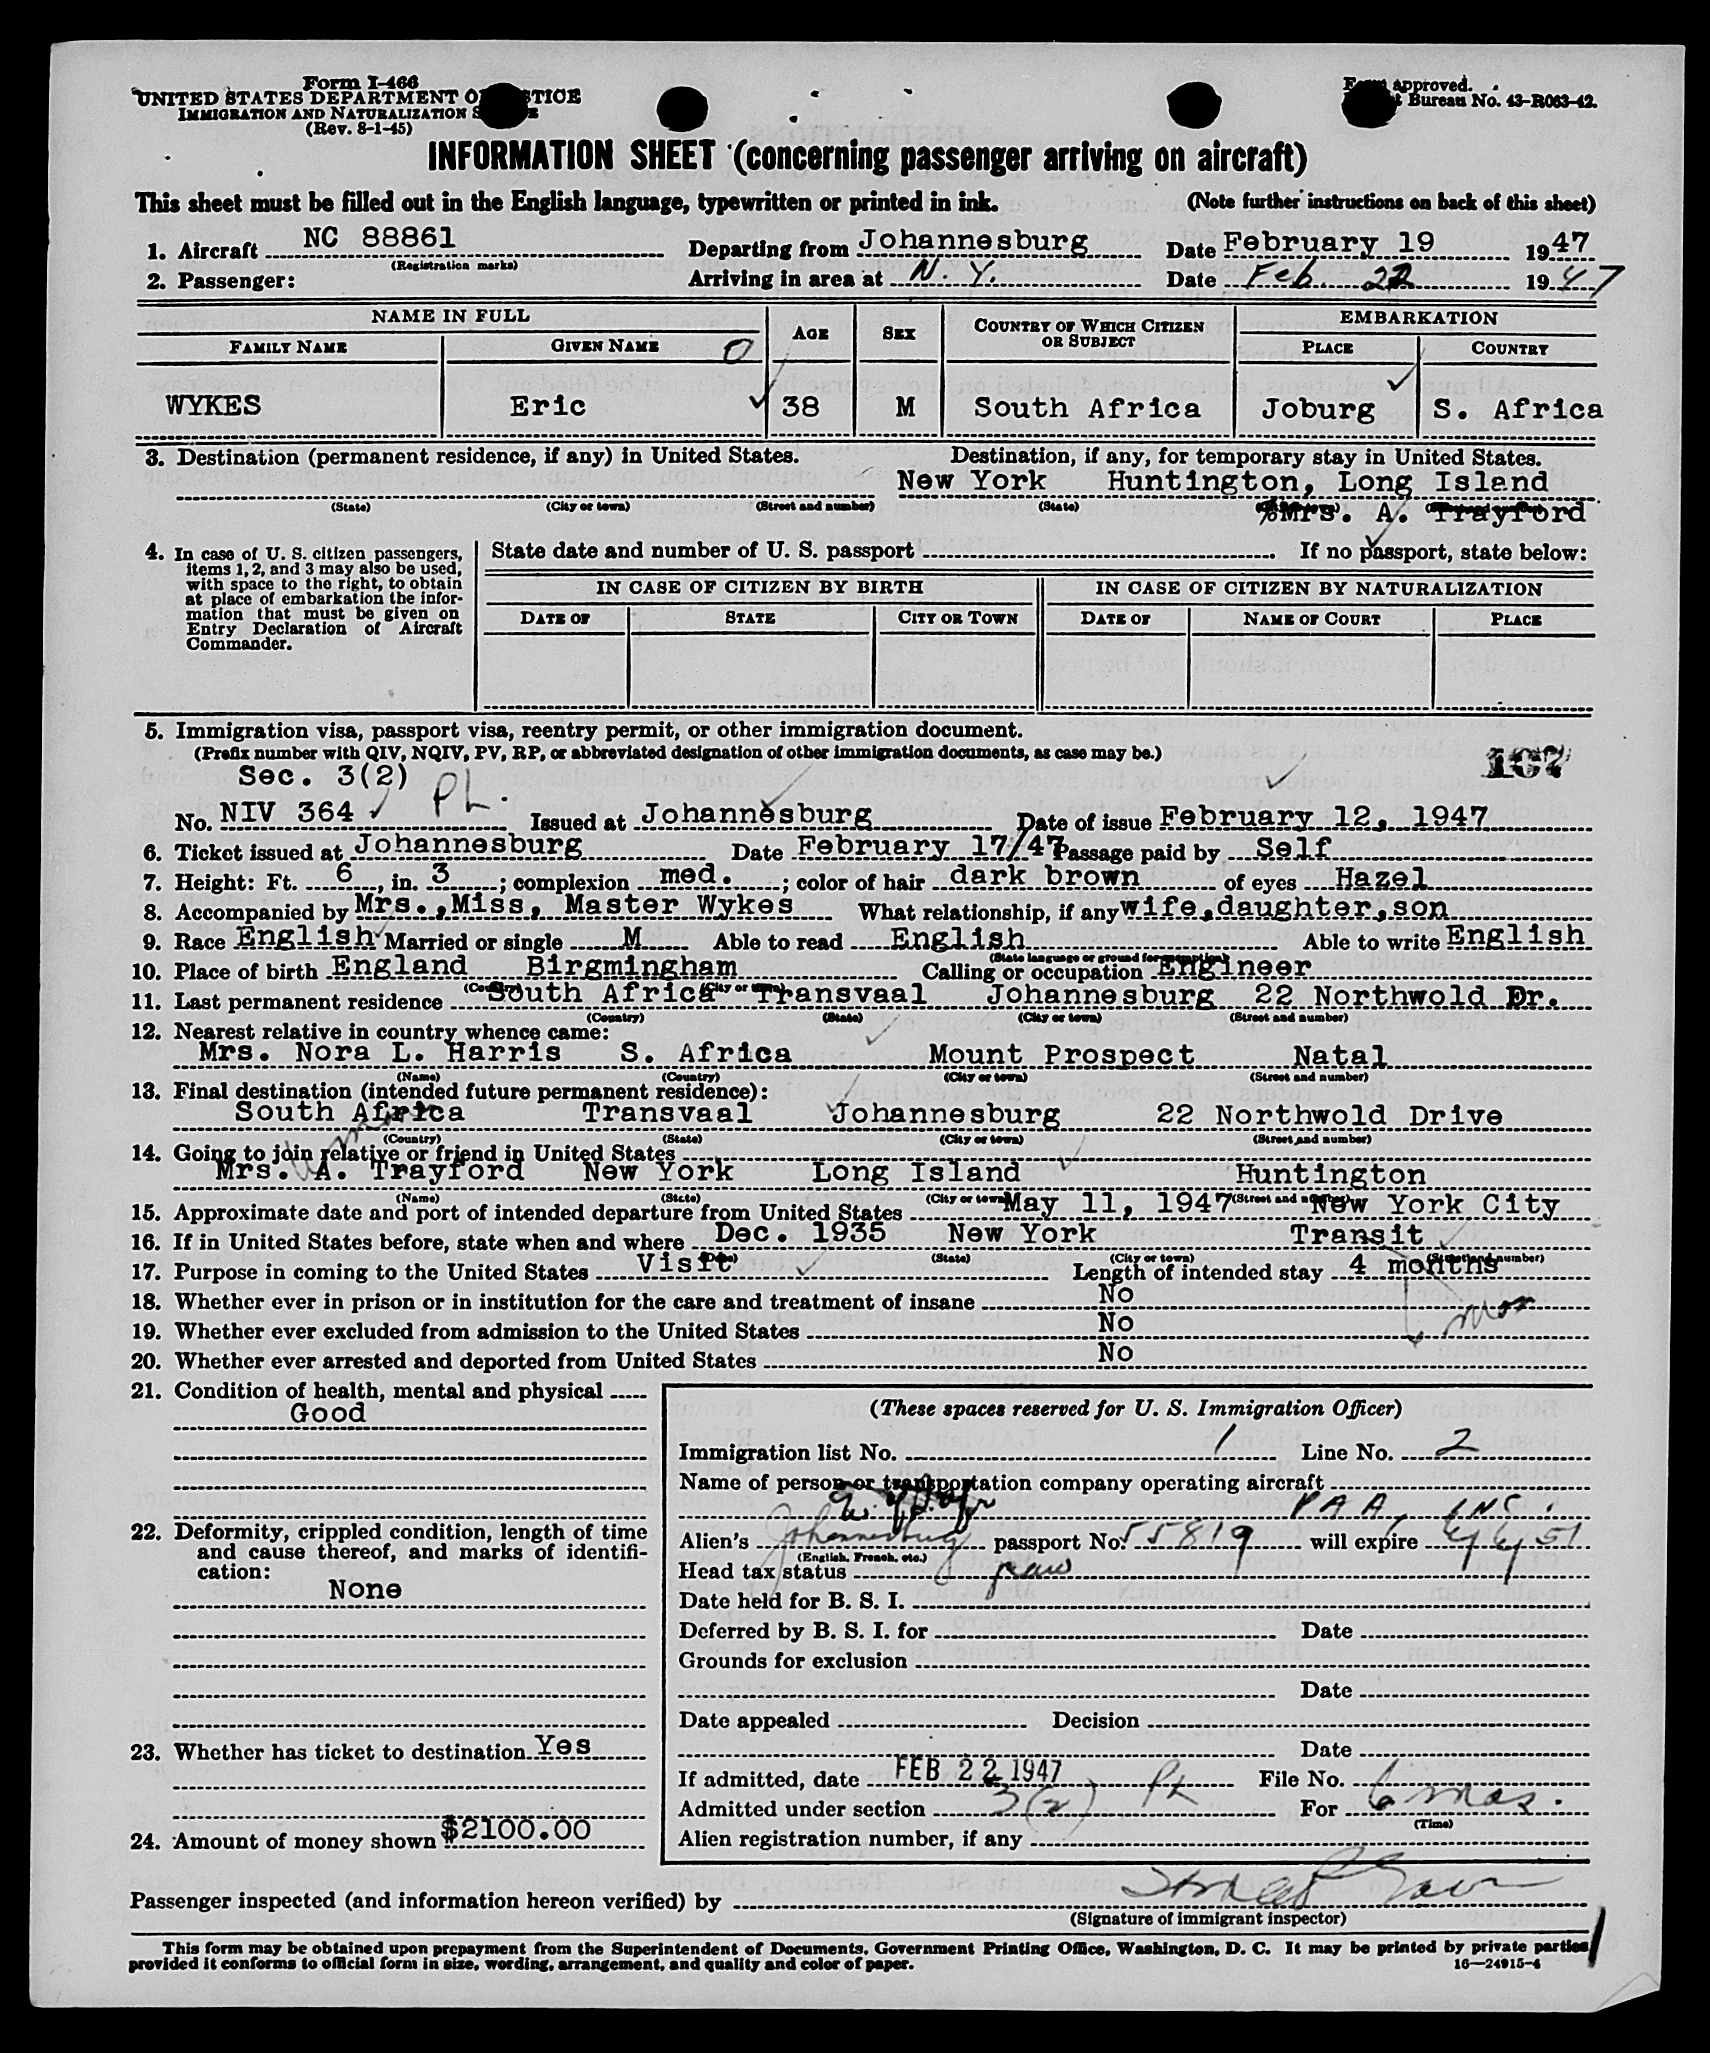 Form I-466
UNITED STATES DEPARTMENT OF JUSTICE
IMMIGRATION AND NATURALIZATION SERVICE
(Rev. 8-1-45)
Form approved.
Bureau No. 43-R063-42.
INFORMATION SHEET (concerning passenger arriving on aircraft)
This sheet must be filled out in the English language, typewritten or printed in ink. (Note further instructions on back of this sheet)
1. Aircraft NC 88861 Departing from Johannesburg Date February 19 1947
(Registration marks)
2. Passenger: Arriving in area at N. Y. Date Feb. 22 1947
NAME IN FULL AGE SEX COUNTRY OF WHICH CITIZEN OR SUBJECT EMBARKATION
FAMILY NAME GIVEN NAME PLACE COUNTRY
WYKES Eric 38 M South Africa Joburg S. Africa
3. Destination (permanent residence, if any) in United States. Destination, if any, for temporary stay in United States.
New York Huntington, Long Island
(State) (City or town) (Street and number) (State)
%Mrs. A. Trayford
4. In case of U. S. citizen passengers, items 1, 2, and 3 may also be used, with space to the right, to obtain at place of embarkation the information that must be given on Entry Declaration of Aircraft Commander.
State date and number of U. S. passport If no passport, state below:
IN CASE OF CITIZEN BY BIRTH IN CASE OF CITIZEN BY NATURALIZATION
DATE OF STATE CITY OR TOWN DATE OF NAME OF COURT PLACE
5. Immigration visa, passport visa, reentry permit, or other immigration document.
(Prefix number with QIV, NQIV, PV, RP, or abbreviated designation of other immigration documents, as case may be.)
167
Sec. 3(2)
No. NIV 364 Issued at Johannesburg Date of issue February 12, 1947
6. Ticket issued at Johannesburg Date February 17/47 Passage paid by Self
7. Height: Ft. 6, in. 3; complexion med.; color of hair dark brown of eyes Hazel
8. Accompanied by Mrs., Miss, Master Wykes What relationship, if any wife, daughter, son
9. Race English Married or single M Able to read English Able to write English
(State language or ground for exemption)
10. Place of birth England Birgmingham Calling or occupation Engineer
(Country) (City or town)
11. Last permanent residence South Africa Transvaal Johannesburg 22 Northwold Dr.
(Country) (State) (City or town) (Street and number)
12. Nearest relative in country whence came:
Mrs. Nora L. Harris S. Africa Mount Prospect Natal
(Name) (Country) (City or town) (Street and number)
13. Final destination (intended future permanent residence):
South Africa Transvaal Johannesburg 22 Northwold Drive
(Country) (State) (City or town) (Street and number)
14. Going to join relative or friend in United States
Mrs. A. Trayford New York Long Island Huntington
(Name) (State) (City or town) (Street and number)
15. Approximate date and port of intended departure from United States May 11, 1947 New York City
16. If in United States before, state when and where Dec. 1935 New York Transit
(Date) (State) (City or town) (Street and number)
17. Purpose in coming to the United States Visit Length of intended stay 4 months
18. Whether ever in prison or in institution for the care and treatment of insane No
6 mos
19. Whether ever excluded from admission to the United States No
20. Whether ever arrested and deported from United States No
21. Condition of health, mental and physical
Good
22. Deformity, crippled condition, length of time and cause thereof, and marks of identification:
None
23. Whether has ticket to destination Yes
24. Amount of money shown $2100.00
(These spaces reserved for U. S. Immigration Officer)
Immigration list No. 1 Line No. 2
Name of person or transportation company operating aircraft
PAA, INC.
Alien's Johannesburg passport No. 55819 will expire
(English, French, etc.)
Head tax status
Date held for B. S. I.
Deferred by B. S. I. for Date
Grounds for exclusion
Date
Date appealed Decision
Date
If admitted, date FEB 22 1947 File No.
Admitted under section 3(2) For 6 mos.
(Time)
Alien registration number, if any
Passenger inspected (and information hereon verified) by
(Signature of immigrant inspector)
This form may be obtained upon prepayment from the Superintendent of Documents, Government Printing Office, Washington, D. C. It may be printed by private parties
provided it conforms to official form in size, wording, arrangement, and quality and color of paper.
16—24915-4